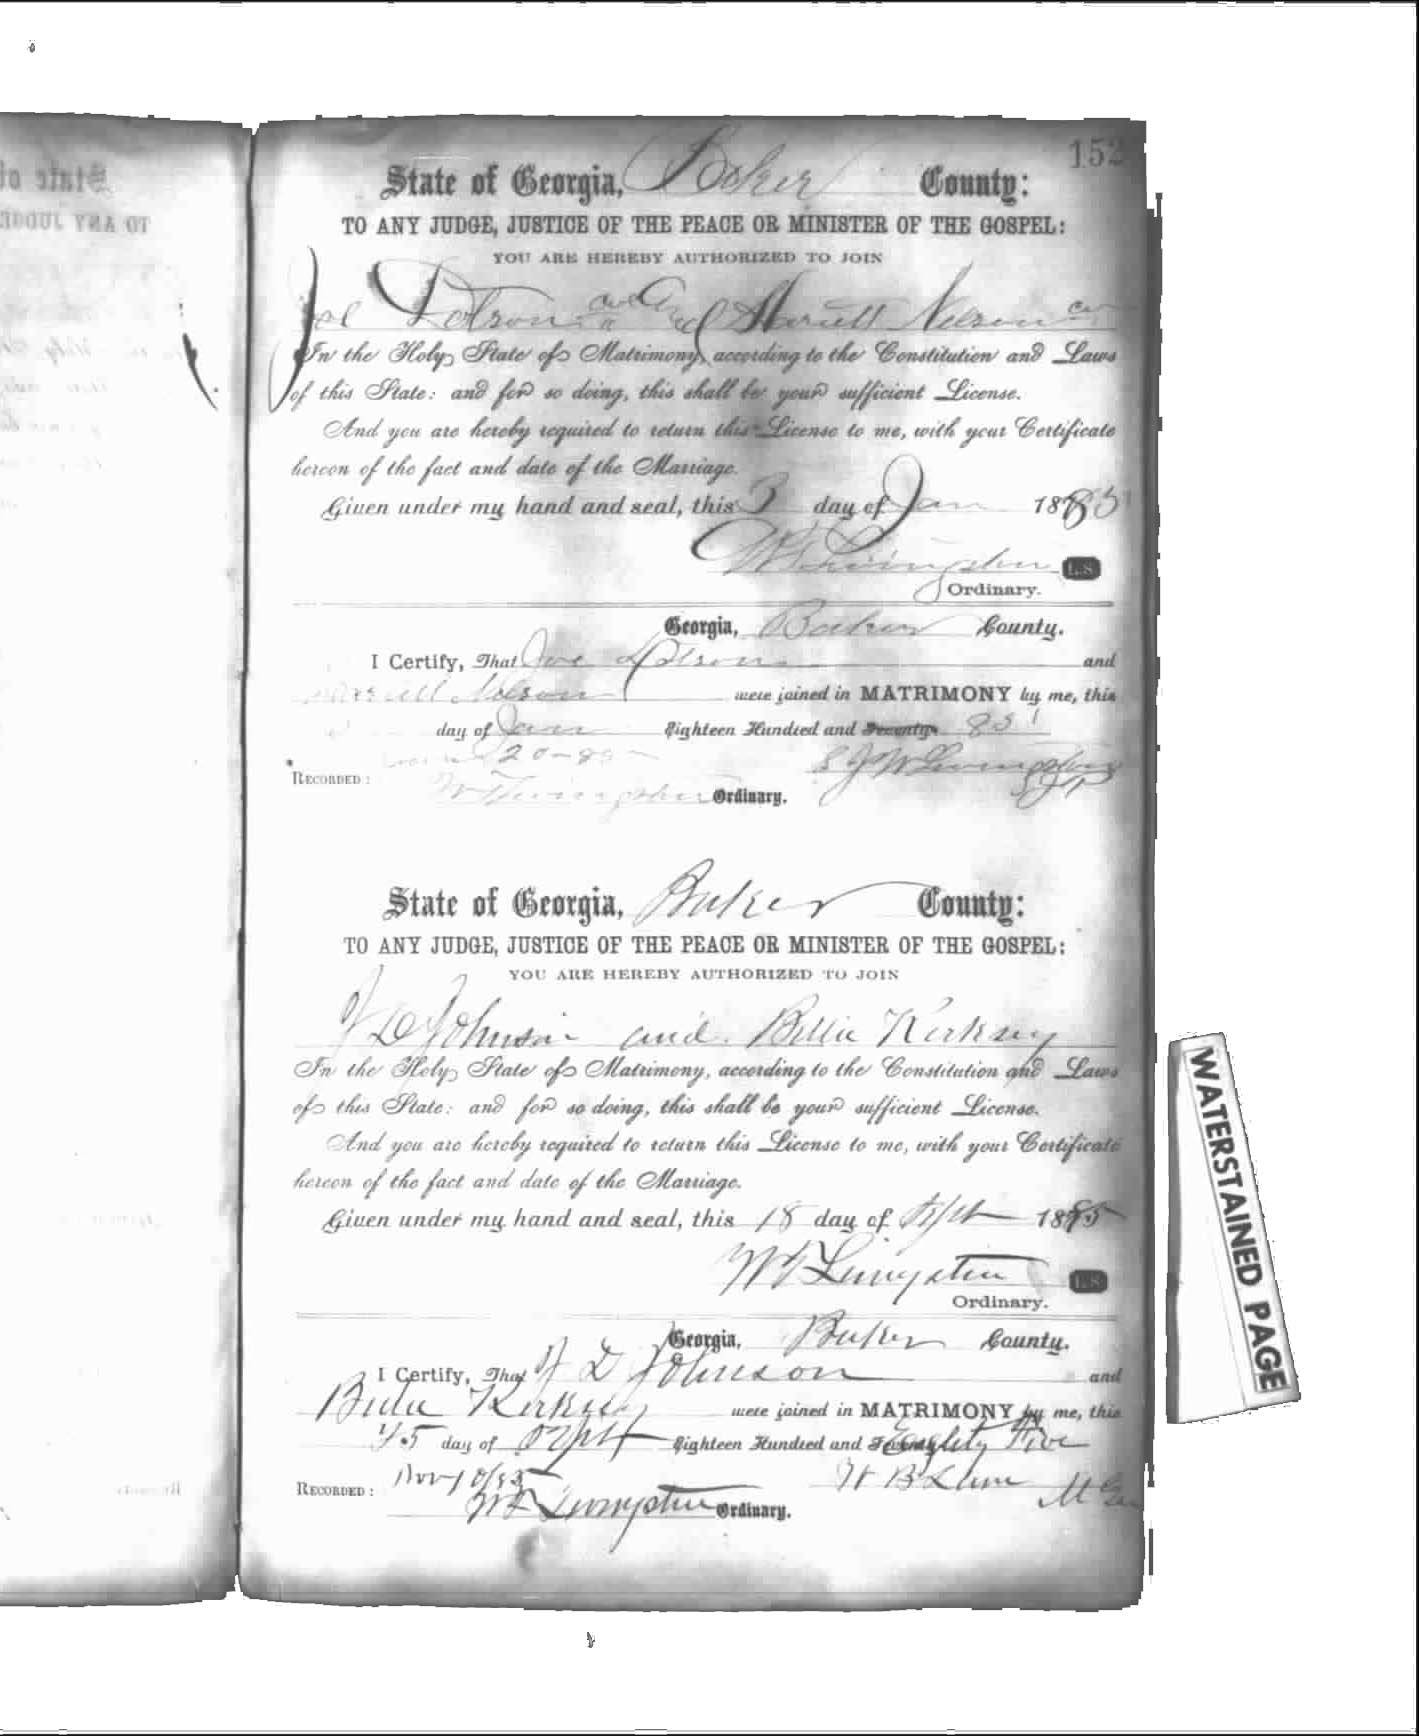 152
State of Georgia, Baker County:
TO ANY JUDGE, JUSTICE OF THE PEACE OR MINISTER OF THE GOSPEL:
YOU ARE HEREBY AUTHORIZED TO JOIN
Joe Dotson col And Harriett Nelson col
In the Holy State of Matrimony, according to the Constitution and Laws
of this State: and for so doing, this shall be your sufficient License.
And you are hereby required to return this License to me, with your Certificate
hereon of the fact and date of the Marriage.
Given under my hand and seal, this 3 day of Jan 1885
W T Livingston L.S.
Ordinary.
Georgia, Baker County.
I Certify, That Joe Dotson and
Harriett Nelson were joined in MATRIMONY by me, this
day of Jan Eighteen Hundred and Seventy 85
20-85
S J W Livingston
RECORDED:
W T Livingston Ordinary.
State of Georgia, Baker County:
TO ANY JUDGE, JUSTICE OF THE PEACE OR MINISTER OF THE GOSPEL:
YOU ARE HEREBY AUTHORIZED TO JOIN
J D Johnson and Kirksey
In the Holy State of Matrimony, according to the Constitution and Laws
of this State: and for so doing, this shall be your sufficient License.
And you are hereby required to return this License to me, with your Certificate
hereon of the fact and date of the Marriage.
Given under my hand and seal, this 18 day of Sept 1885
W T Livingston L.S.
Ordinary.
Georgia, Baker County.
I Certify, That J D Johnson and
Kirksey were joined in MATRIMONY by me, this
day of Sept Eighteen Hundred and Seventy Eighty Five
Nov 10/85
W B Lane
RECORDED:
W T Livingston Ordinary.
WATERSTAINED PAGE